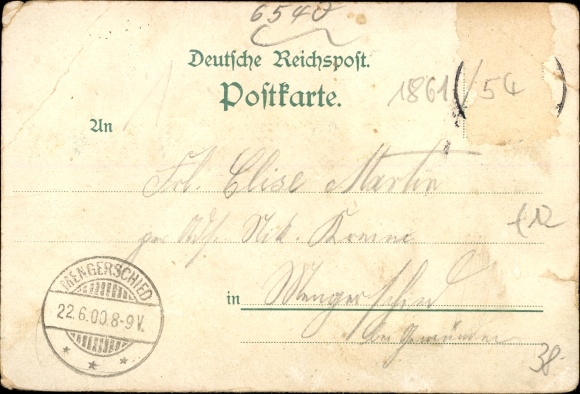 6540
Deutsche Reichspost.
Postkarte.
1861/54
An
Frl. Elise Martin
per Adr. Nik.
£12
MENGERSCHIED
22.6.00.8-9V.
in Mengerschied
bei Gemünden
38.-